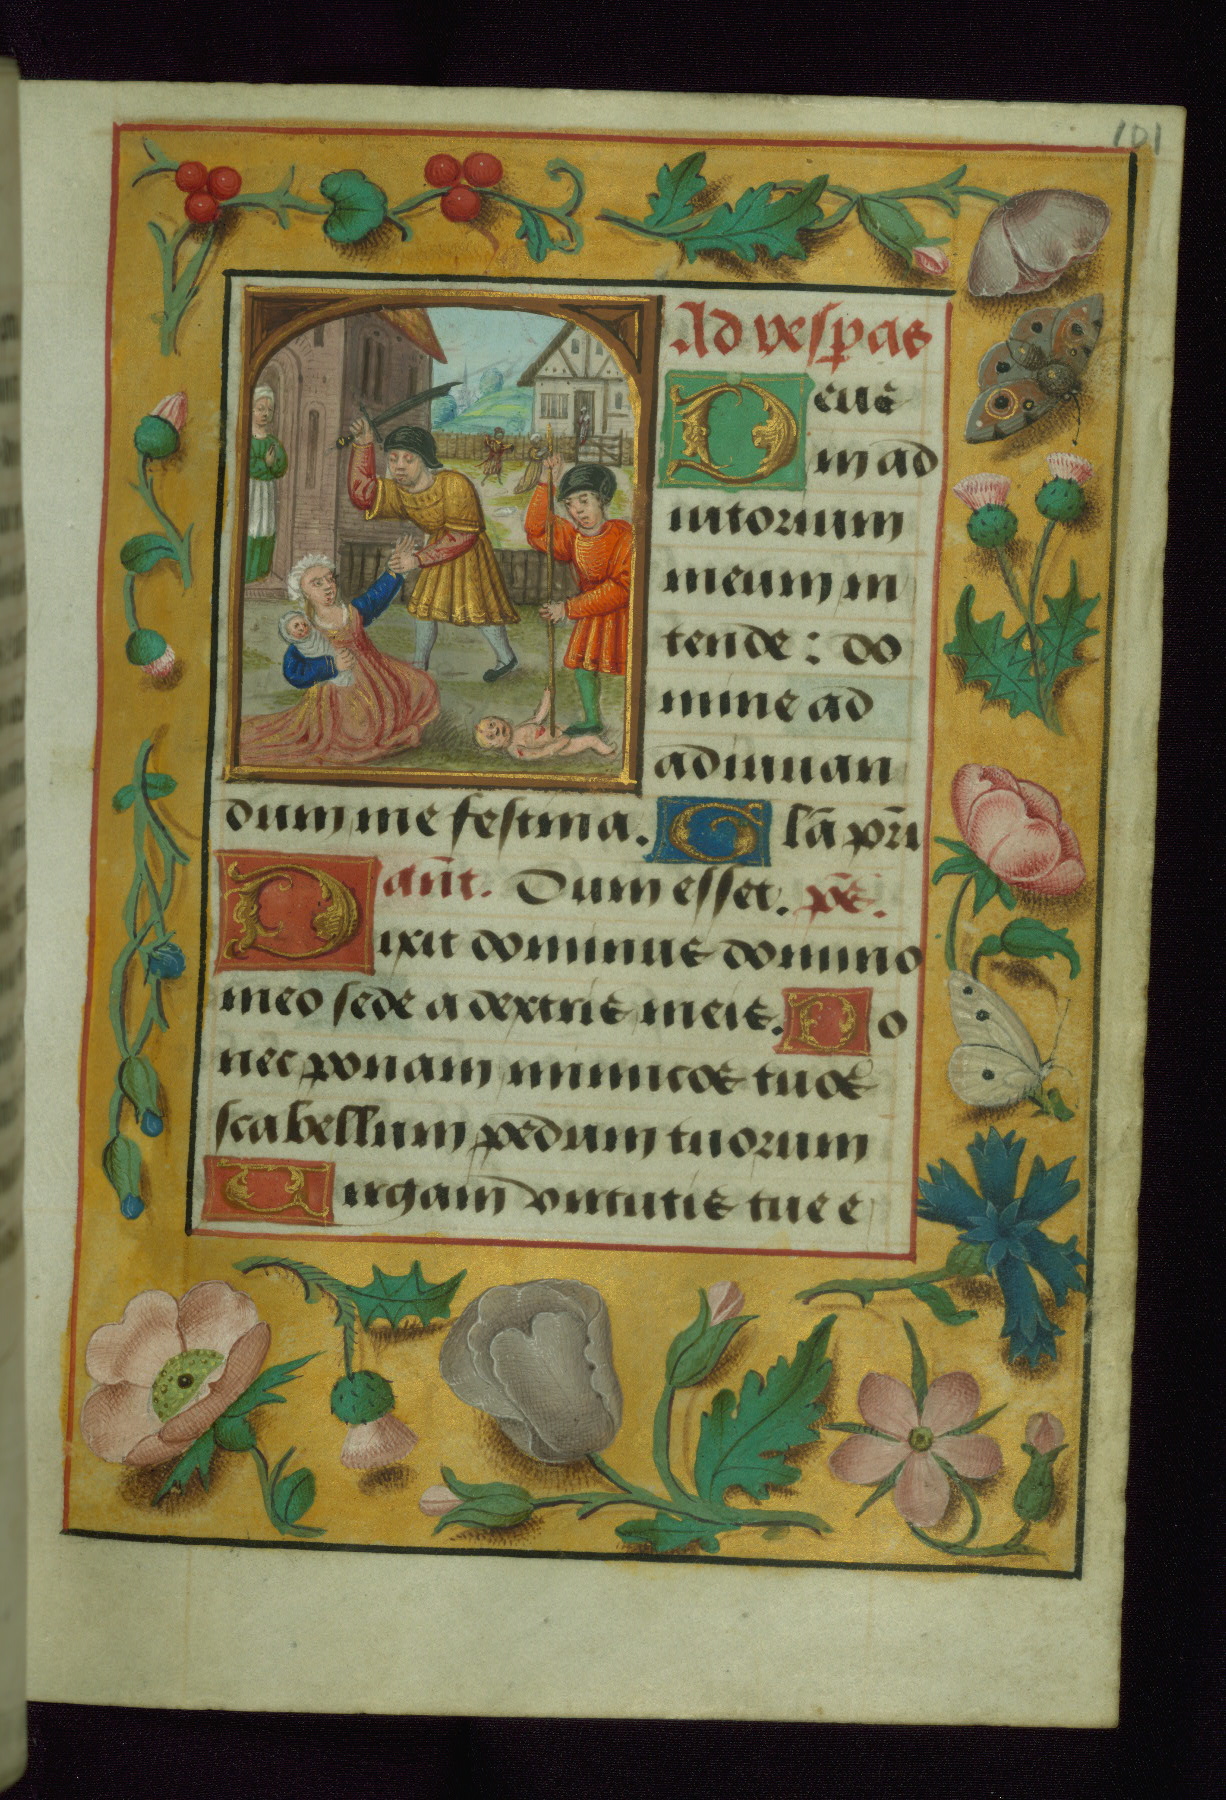 101
Ad vesperas
Deus
in ad
iutorium
meum in
tende: do
mine ad
adiuuan
dum me festina. Glã pri
añt. Dum esset. ps.
Dixit dominus domino
meo sede a dextris meis. Do
nec ponam inimicos tuos
scabellum pedum tuorum
Uirgam virtutis tue e